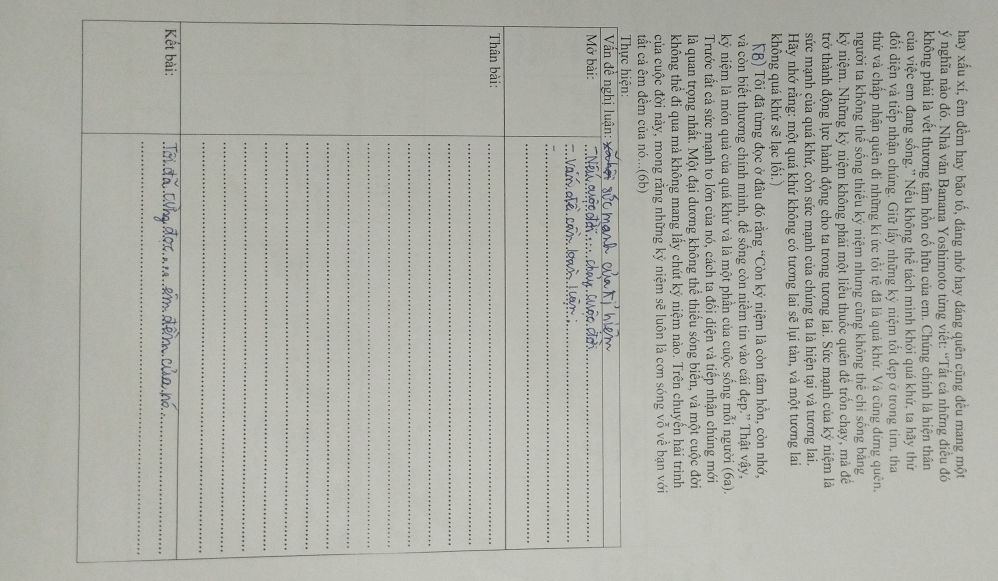 hay xấu xí, êm đềm hay bão tố, đáng nhớ hay đáng quên cũng đều mang một
ý nghĩa nào đó. Nhà văn Banana Yoshimoto từng viết: “Tất cả những điều đó
không phải là vết thương tâm hồn cố hữu của em. Chúng chính là hiện thân
của việc em đang sống.” Nếu không thể tách mình khỏi quá khứ, ta hãy thử
đối diện và tiếp nhận chúng. Giữ lấy những kỷ niệm tốt đẹp ở trong tim, tha
thứ và chấp nhận quên đi những kí ức tồi tệ đã là quá khứ. Và cũng đừng quên,
người ta không thể sống thiếu kỷ niệm nhưng cũng không thể chỉ sống bằng
kỷ niệm. Những kỷ niệm không phải một liều thuốc quên để trốn chạy, mà để
trở thành động lực hành động cho ta trong tương lai. Sức mạnh của kỷ niệm là
sức mạnh của quá khứ, còn sức mạnh của chúng ta là hiện tại và tương lai.
Hãy nhớ rằng: một quá khứ không có tương lai sẽ lụi tàn, và một tương lai
không quá khứ sẽ lạc lối.)
KB) Tôi đã từng đọc ở đâu đó rằng “Còn kỷ niệm là còn tâm hồn, còn nhớ,
và còn biết thương chính mình, để sống còn niềm tin vào cái đẹp.” Thật vậy,
kỷ niệm là món quà của quá khứ và là một phần của cuộc sống mỗi người (6a).
Trước tất cả sức mạnh to lớn của nó, cách ta đối diện và tiếp nhận chúng mới
là quan trọng nhất. Một đại dương không thể thiếu sóng biển, và một cuộc đời
không thể đi qua mà không mang lấy chút kỷ niệm nào. Trên chuyến hải trình
của cuộc đời này, mong rằng những kỷ niệm sẽ luôn là cơn sóng vỗ về bạn với
tất cả êm đềm của nó...(6b)
Thực hiện:
Vấn đề nghị luận: sức mạnh của kỉ niệm
Mở bài: - Nếu cuộc đời ... cuộc đời
- Vấn đề cần bàn luận:
-
Thân bài:
Kết bài: Tôi đã từng đọc ... êm đềm của nó